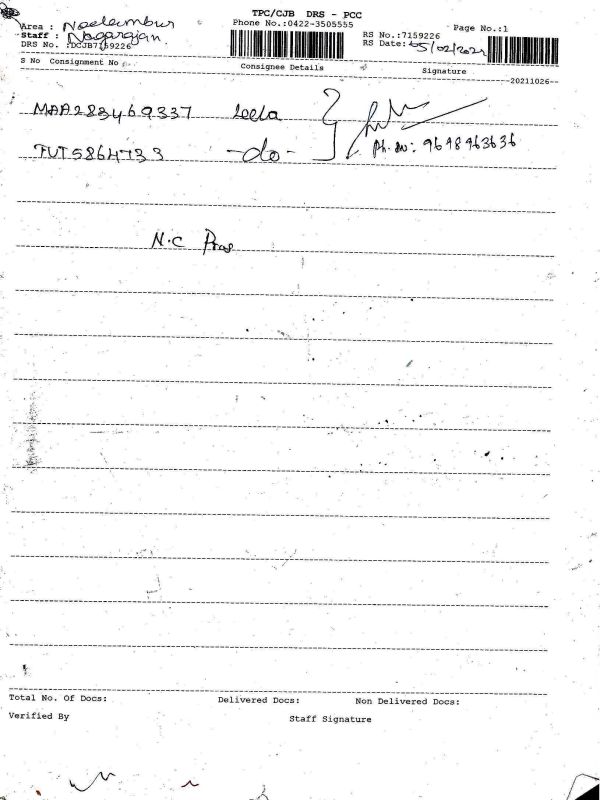 TPC/CJB DRS - PCC
Phone No.:0422-3505555
Page No.:1
Area : Neelambur
Staff : Nagarajan.
DRS No. :DCJB7159226
RS No.:7159226
RS Date: 05/02/2022
S No Consignment No
Consignee Details
Signature
--20211026--
MAA283469337 Leela
Ph. no: 9698963636
TUT5864733 -do-
N.C
Total No. Of Docs:
Delivered Docs:
Non Delivered Docs:
Verified By
Staff Signature